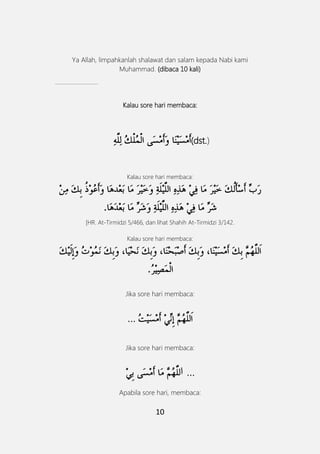 Ya Allah, limpahkanlah shalawat dan salam kepada Nabi kami
Muhammad. (dibaca 10 kali)
Kalau sore hari membaca:
أَمْسَيْنَا وَأَمْسَى الْمُلْكُ لِلَّهِ(dst.)
Kalau sore hari membaca:
رَبِّ أَسْأَلُكَ خَيْرَ مَا فِيْ هَذِهِ اللَّيْلَةِ وَخَيْرَ مَا بَعْدَهَا وَأَعُوْذُ بِكَ مِنْ
شَرِّ مَا فِيْ هَذِهِ اللَّيْلَةِ وَشَرِّ مَا بَعْدَهَا.
[HR. At-Tirmidzi 5/466, dan lihat Shahih At-Tirmidzi 3/142.
Kalau sore hari membaca:
اَللَّهُمَّ بِكَ أَمْسَيْنَا، وَبِكَ أَصْبَحْنَا، وَبِكَ نَحْيَا، وَبِكَ نَمُوْتُ وَإِلَيْكَ
الْمَصِيْرُ.
Jika sore hari membaca:
اَللَّهُمَّ إِنِّيْ أَمْسَيْتُ ...
Jika sore hari membaca:
... اللَّهُمَّ مَا أَمْسَى بِيْ
Apabila sore hari, membaca:
10